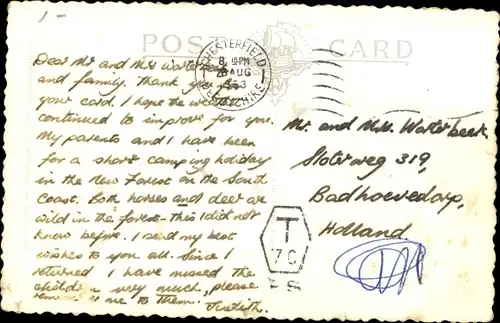 1-
POST CARD
CHESTERFIELD
8 PM
AUG
DERBYSHIRE
Dear Mr and Mrs
and family. Thank you
your card. I hope the
continued to improve for you.
My parents and I have been
for a short camping holiday
in the New Forest on the South
Coast. Both horses and deer are
wild in the forest - this I did not
know before. I send my best
wishes to you all. Since I
returned I have missed the
children very much, please
me to them.
Judith.
Mr. and Mrs. Waterbeek
Sloterweg 319,
Badhoevedorp,
Holland.
T
70